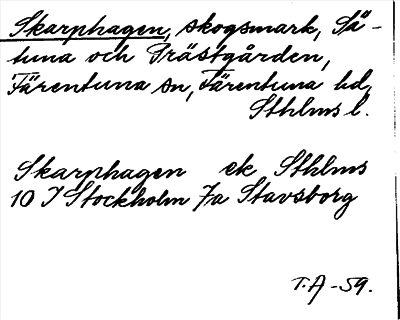 Skarphagen, skogsmark, Så-
tuna och Prästgården,
Färentuna sn, Färentuna hd,
Sthlms l.
Skarphagen ek Sthlms
10 I Stockholm 7a Stavsborg
T.A-59.